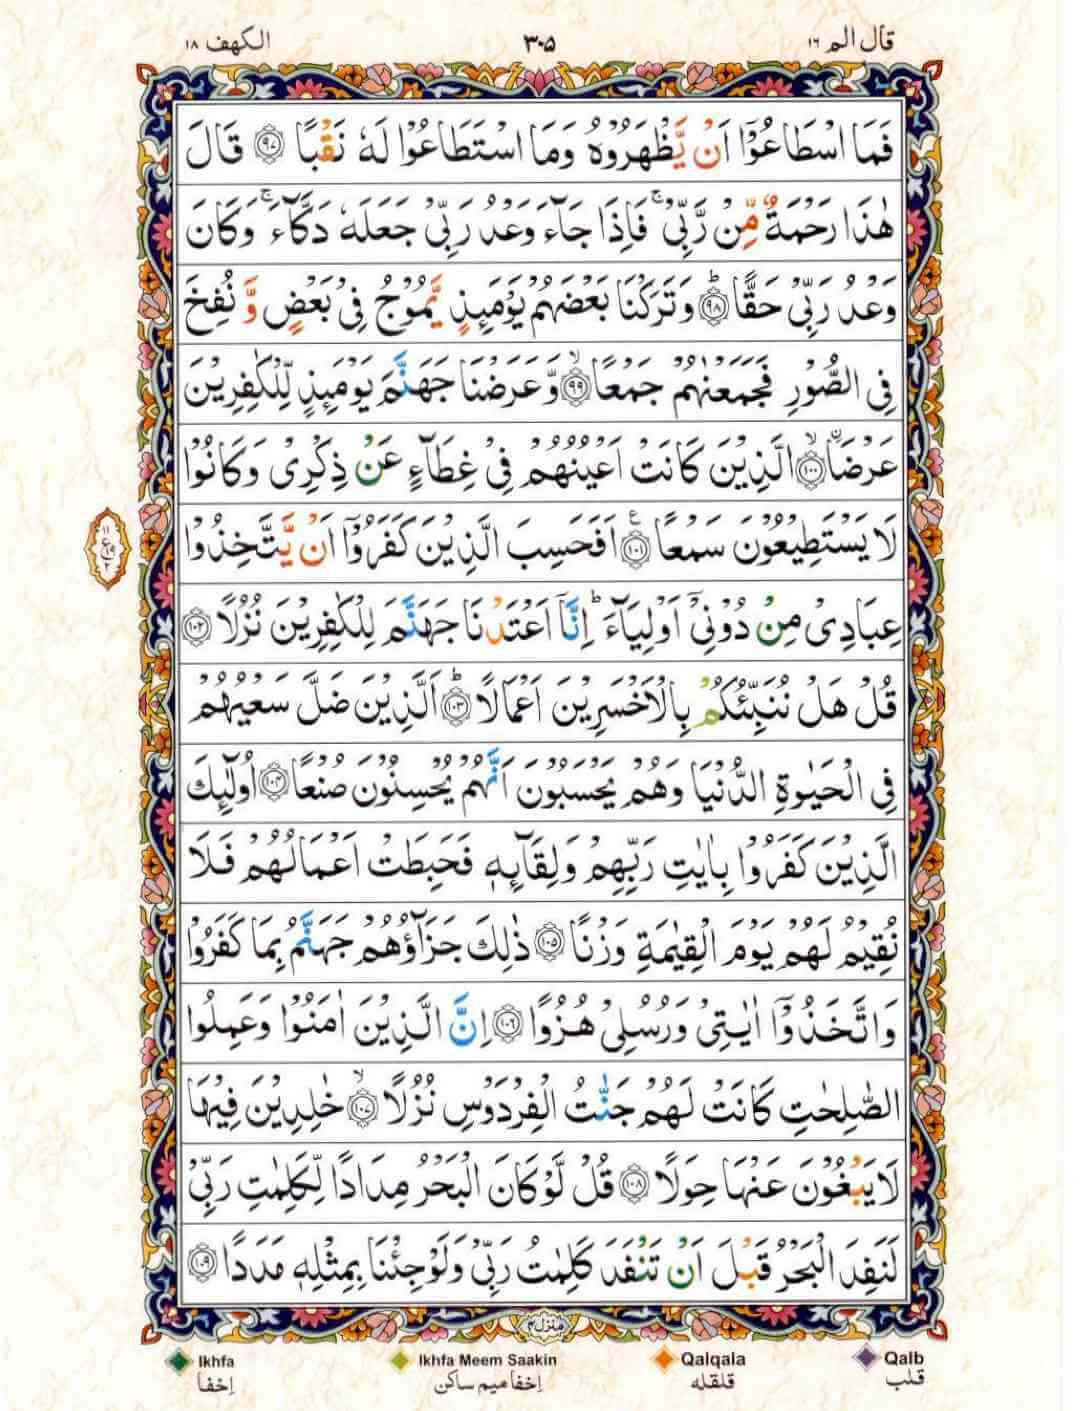 قال الم ١٦
٣٠٥
الكهف ١٨
فَمَا اسْطَاعُوْۤا اَنْ يَّظْهَرُوْهُ وَمَا اسْتَطَاعُوْا لَهٗ نَقْبًا ۝٩٧ قَالَ
هٰذَا رَحْمَةٌ مِّنْ رَّبِّيْ ۚ فَاِذَا جَآءَ وَعْدُ رَبِّيْ جَعَلَهٗ دَكَّآءَ ۚ وَكَانَ
وَعْدُ رَبِّيْ حَقًّا ؕ۝٩٨ وَتَرَكْنَا بَعْضَهُمْ يَوْمَئِذٍ يَّمُوْجُ فِيْ بَعْضٍ وَّ نُفِخَ
فِي الصُّوْرِ فَجَمَعْنٰهُمْ جَمْعًا ۙ۝٩٩ وَّعَرَضْنَا جَهَنَّمَ يَوْمَئِذٍ لِّلْكٰفِرِيْنَ
عَرْضَاۨ ۙ۝١٠٠ الَّذِيْنَ كَانَتْ اَعْيُنُهُمْ فِيْ غِطَآءٍ عَنْ ذِكْرِيْ وَكَانُوْا
لَا يَسْتَطِيْعُوْنَ سَمْعًا ۝١٠١ ع اَفَحَسِبَ الَّذِيْنَ كَفَرُوْۤا اَنْ يَّتَّخِذُوْا
عِبَادِيْ مِنْ دُوْنِيْۤ اَوْلِيَآءَ ؕ اِنَّاۤ اَعْتَدْنَا جَهَنَّمَ لِلْكٰفِرِيْنَ نُزُلًا ۝١٠٢
قُلْ هَلْ نُنَبِّئُكُمْ بِالْاَخْسَرِيْنَ اَعْمَالًا ؕ۝١٠٣ اَلَّذِيْنَ ضَلَّ سَعْيُهُمْ
فِي الْحَيٰوةِ الدُّنْيَا وَهُمْ يَحْسَبُوْنَ اَنَّهُمْ يُحْسِنُوْنَ صُنْعًا ۝١٠٤ اُولٰٓئِكَ
الَّذِيْنَ كَفَرُوْا بِاٰيٰتِ رَبِّهِمْ وَلِقَآئِهٖ فَحَبِطَتْ اَعْمَالُهُمْ فَلَا
نُقِيْمُ لَهُمْ يَوْمَ الْقِيٰمَةِ وَزْنًا ۝١٠٥ ذٰلِكَ جَزَآؤُهُمْ جَهَنَّمُ بِمَا كَفَرُوْا
وَاتَّخَذُوْۤا اٰيٰتِيْ وَرُسُلِيْ هُزُوًا ۝١٠٦ اِنَّ الَّذِيْنَ اٰمَنُوْا وَعَمِلُوا
الصّٰلِحٰتِ كَانَتْ لَهُمْ جَنّٰتُ الْفِرْدَوْسِ نُزُلًا ۙ۝١٠٧ خٰلِدِيْنَ فِيْهَا
لَا يَبْغُوْنَ عَنْهَا حِوَلًا ۝١٠٨ قُلْ لَّوْ كَانَ الْبَحْرُ مِدَادًا لِّكَلِمٰتِ رَبِّيْ
لَنَفِدَ الْبَحْرُ قَبْلَ اَنْ تَنْفَدَ كَلِمٰتُ رَبِّيْ وَلَوْ جِئْنَا بِمِثْلِهٖ مَدَدًا ۝١٠٩
منزل ٤
Ikhfa
Ikhfa Meem Saakin
Qalqala
Qalb
اخفا
اخفا میم ساکن
قلقله
قلب